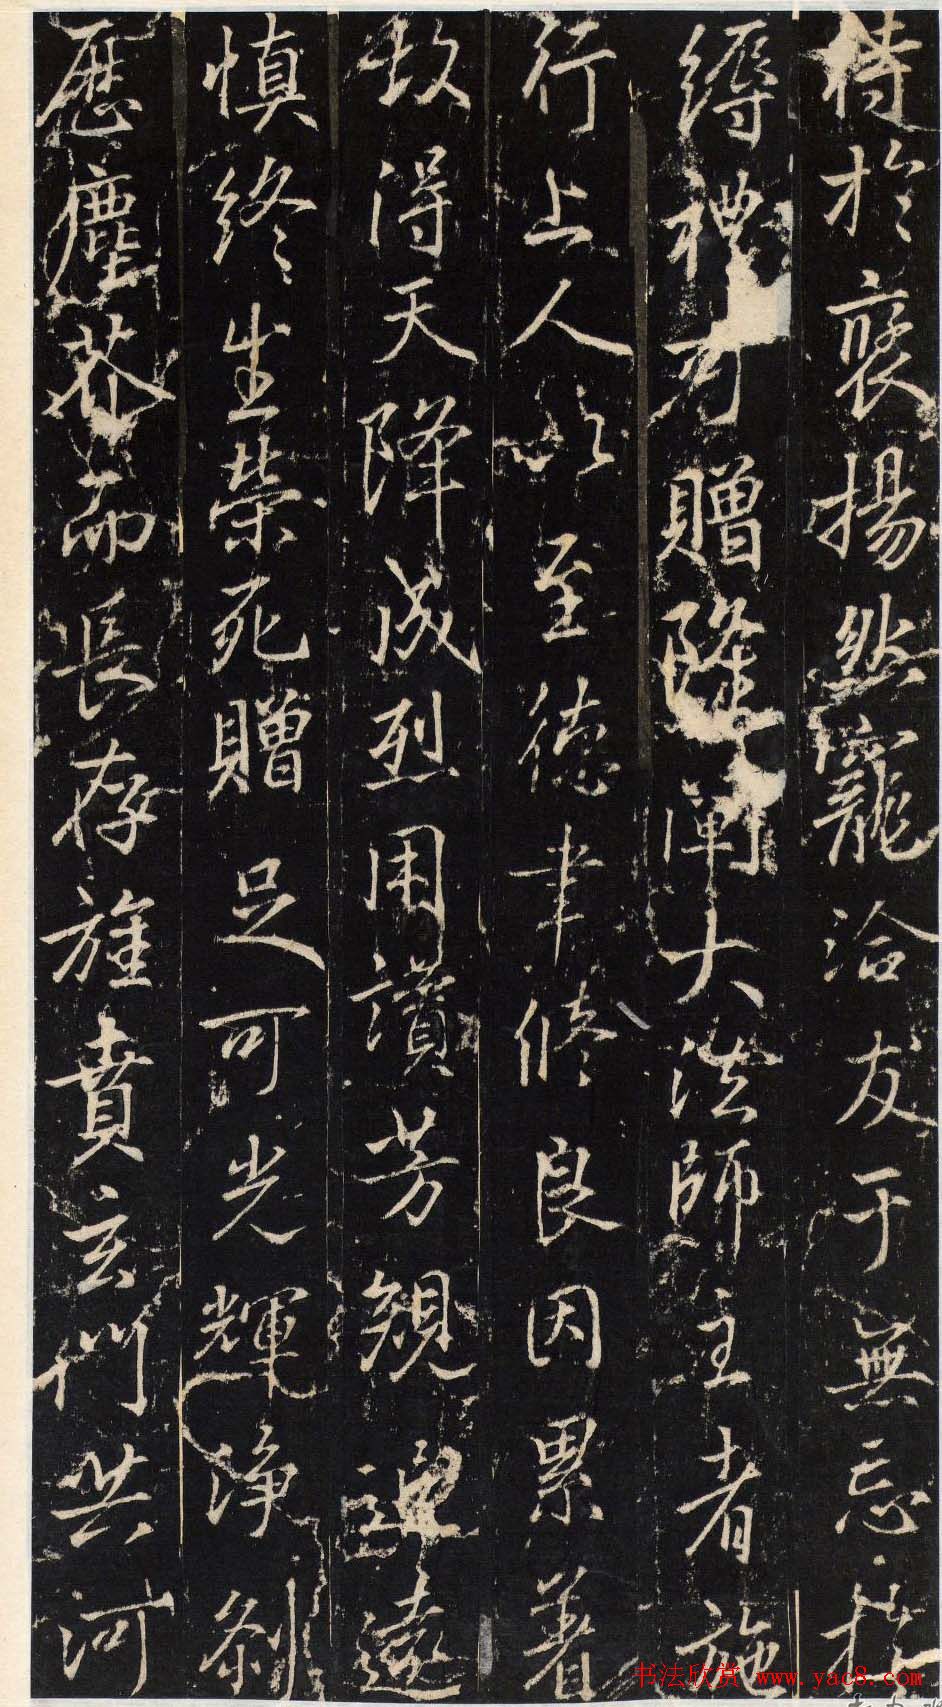 特於褒揚然寵洽友于無忘於
縟禮可贈隆闡大法師主者施
行上人以至德聿修良因累著
故得天降成烈用讚芳規追遠
慎終生榮死贈足可光輝淨剎
歷塵芥而長存旌賁玄門共河
书法欣赏 www.yac8.com